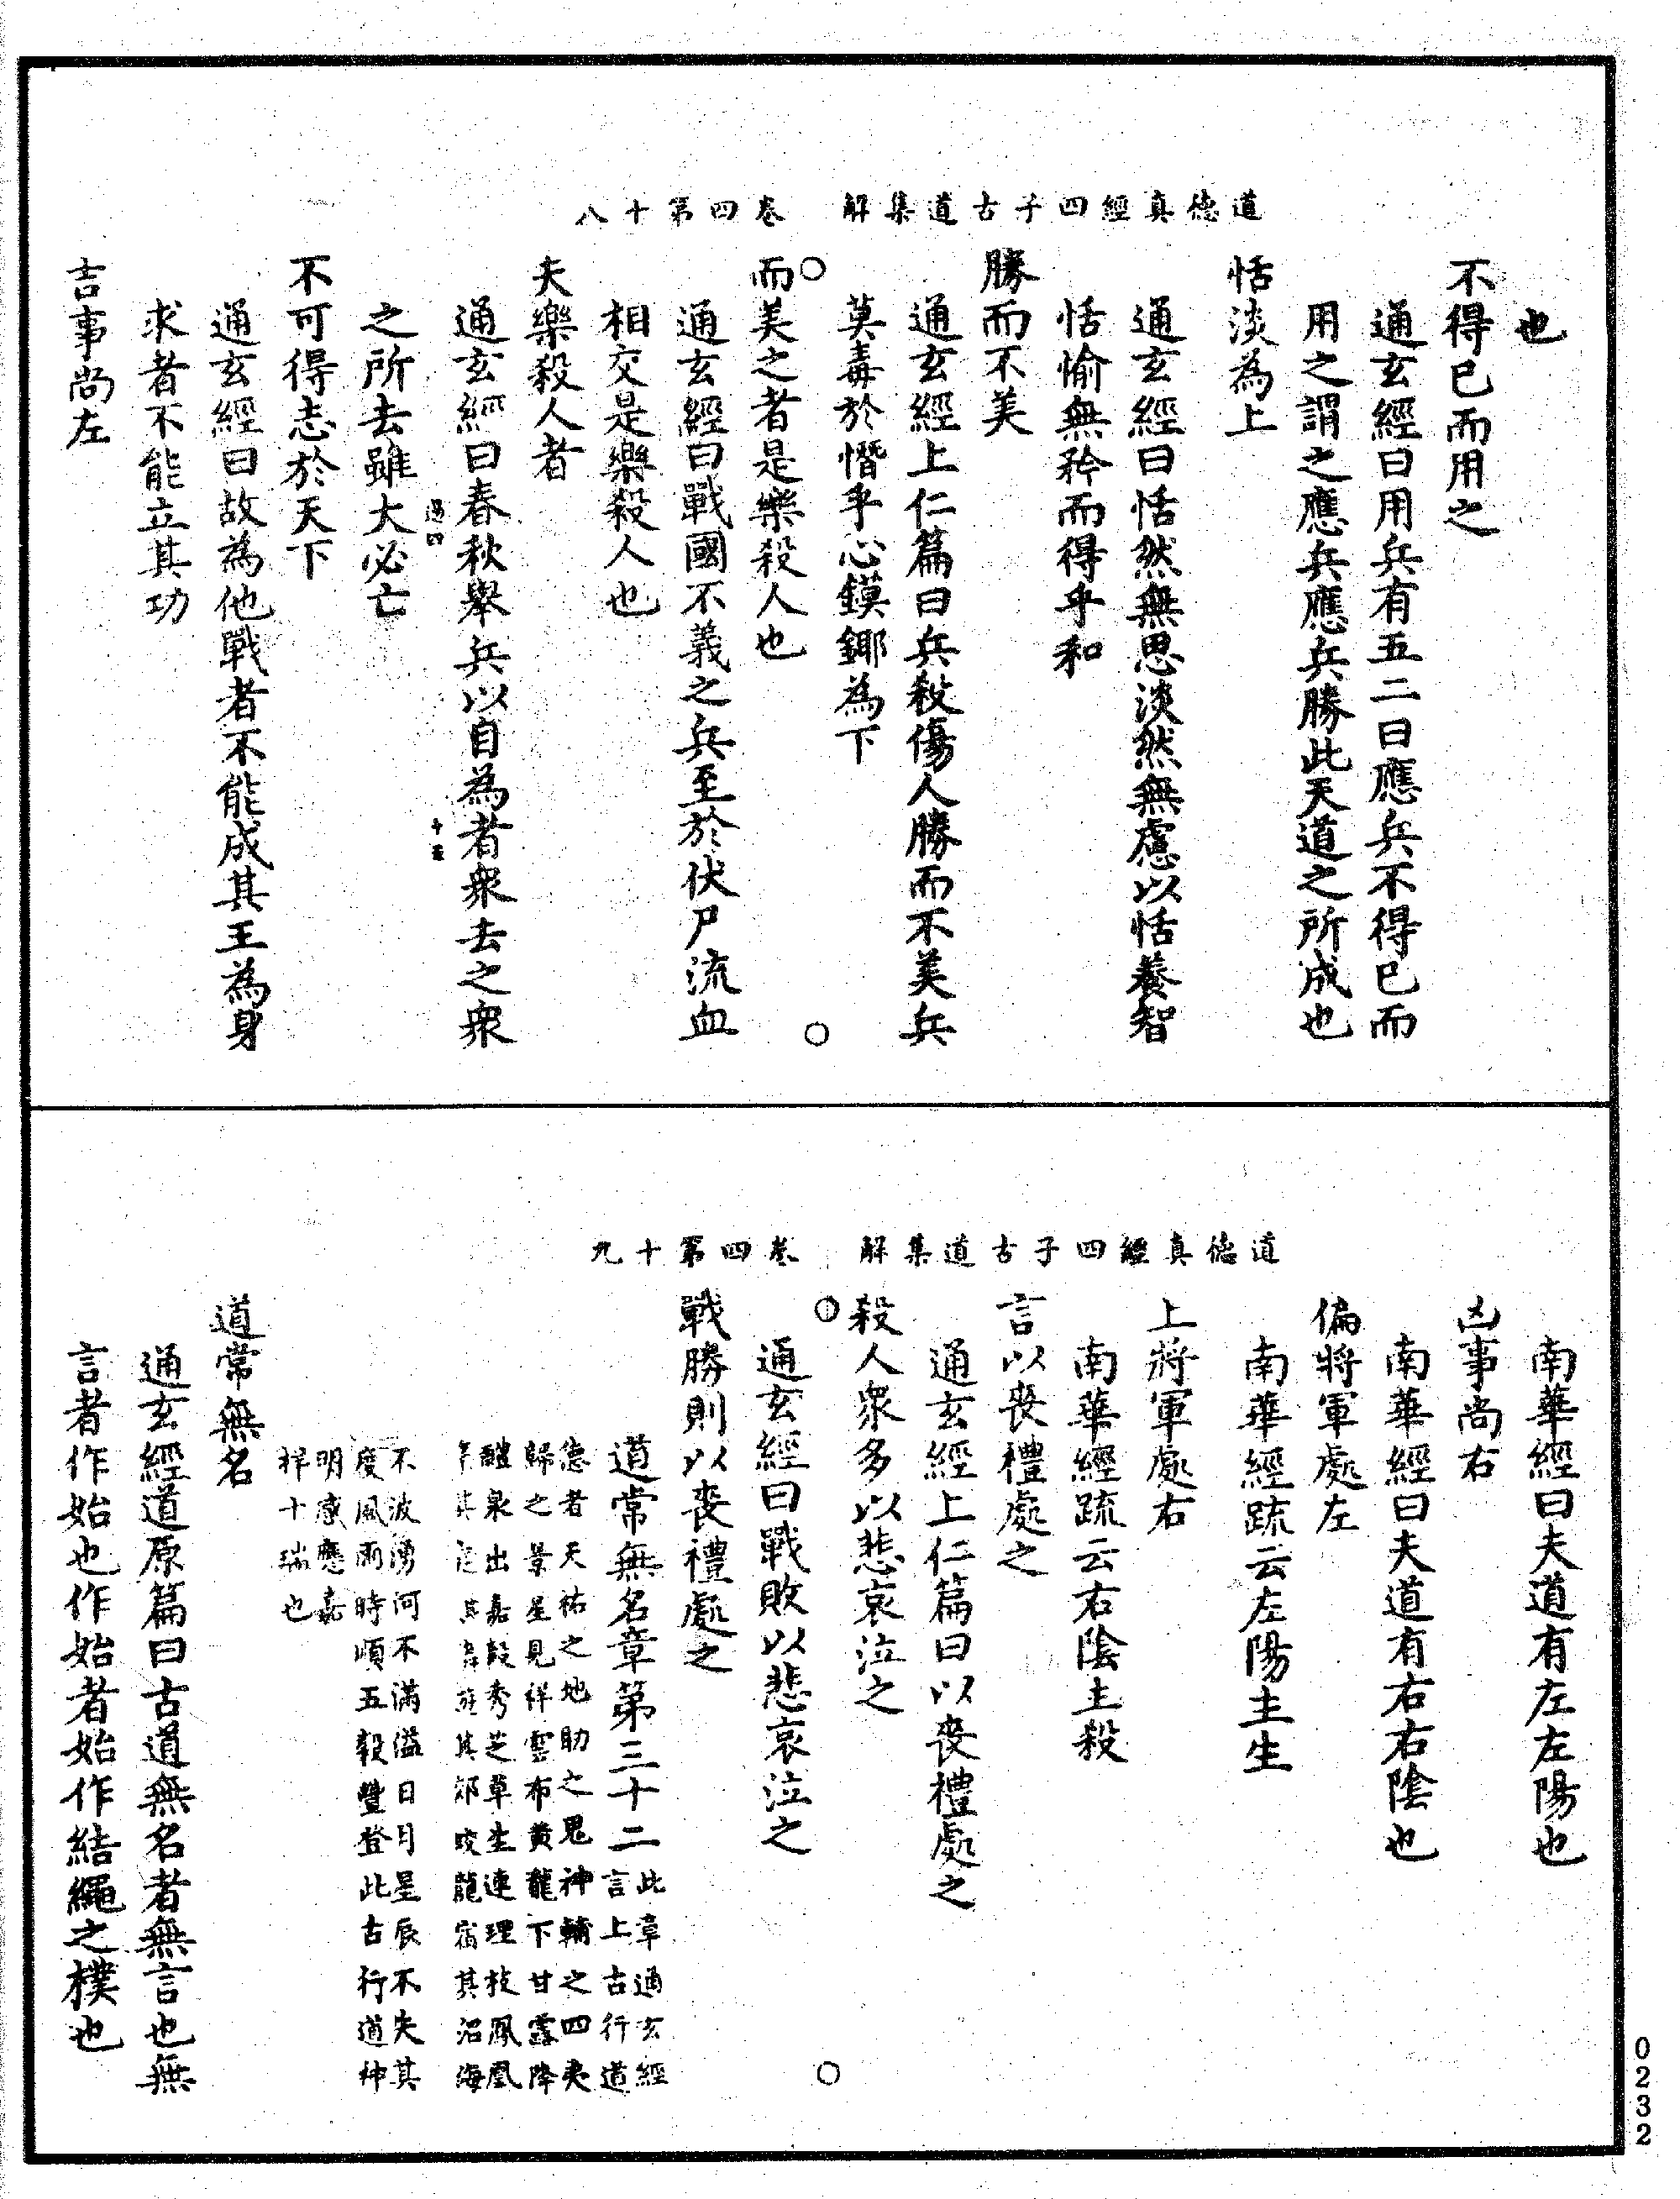 道德真經四子古道集解　卷四第十八
也
不得已而用之
通玄經曰用兵有五二曰應兵不得已而
用之謂之應兵應兵勝此天道之所成也
恬淡為上
通玄經曰恬然無思淡然無慮以恬養智
恬愉無矜而得乎和
勝而不美
通玄經上仁篇曰兵殺傷人勝而不美兵
莫毒於憯乎心鏌鎁為下
○而美之者是樂殺人也○
通玄經曰戰國不義之兵至於伏尸流血
相交是樂殺人也
夫樂殺人者
通玄經曰春秋舉兵以自為者衆去之衆
過四　十五
之所去雖大必亡
不可得志於天下
通玄經曰故為他戰者不能成其王為身
求者不能立其功
吉事尚左
道德真經四子古道集解　卷四第十九
南華經曰夫道有左左陽也
凶事尚右
南華經曰夫道有右右陰也
偏將軍處左
南華經疏云左陽主生
上將軍處右
南華經疏云右陰主殺
言以喪禮處之
通玄經上仁篇曰以喪禮處之
殺人衆多以悲哀泣之
○　○
通玄經曰戰敗以悲哀泣之
戰勝則以喪禮處之
道常無名章第三十二
此章通玄經
言上古行道
德者天祐之地助之鬼神輔之四夷
歸之景星見祥雲布黃龍下甘露降
醴泉出嘉穀秀芝草生連理枝鳳凰
其庭其麟遊其郊蛟龍宿其沼海
不波湧河不滿溢日月星辰不失其
度風雨時順五穀豐登此古行道神
明感應嘉
祥十瑞也
道常無名
通玄經道原篇曰古道無名者無言也無
言者作始也作始者始作結繩之樸也
0232